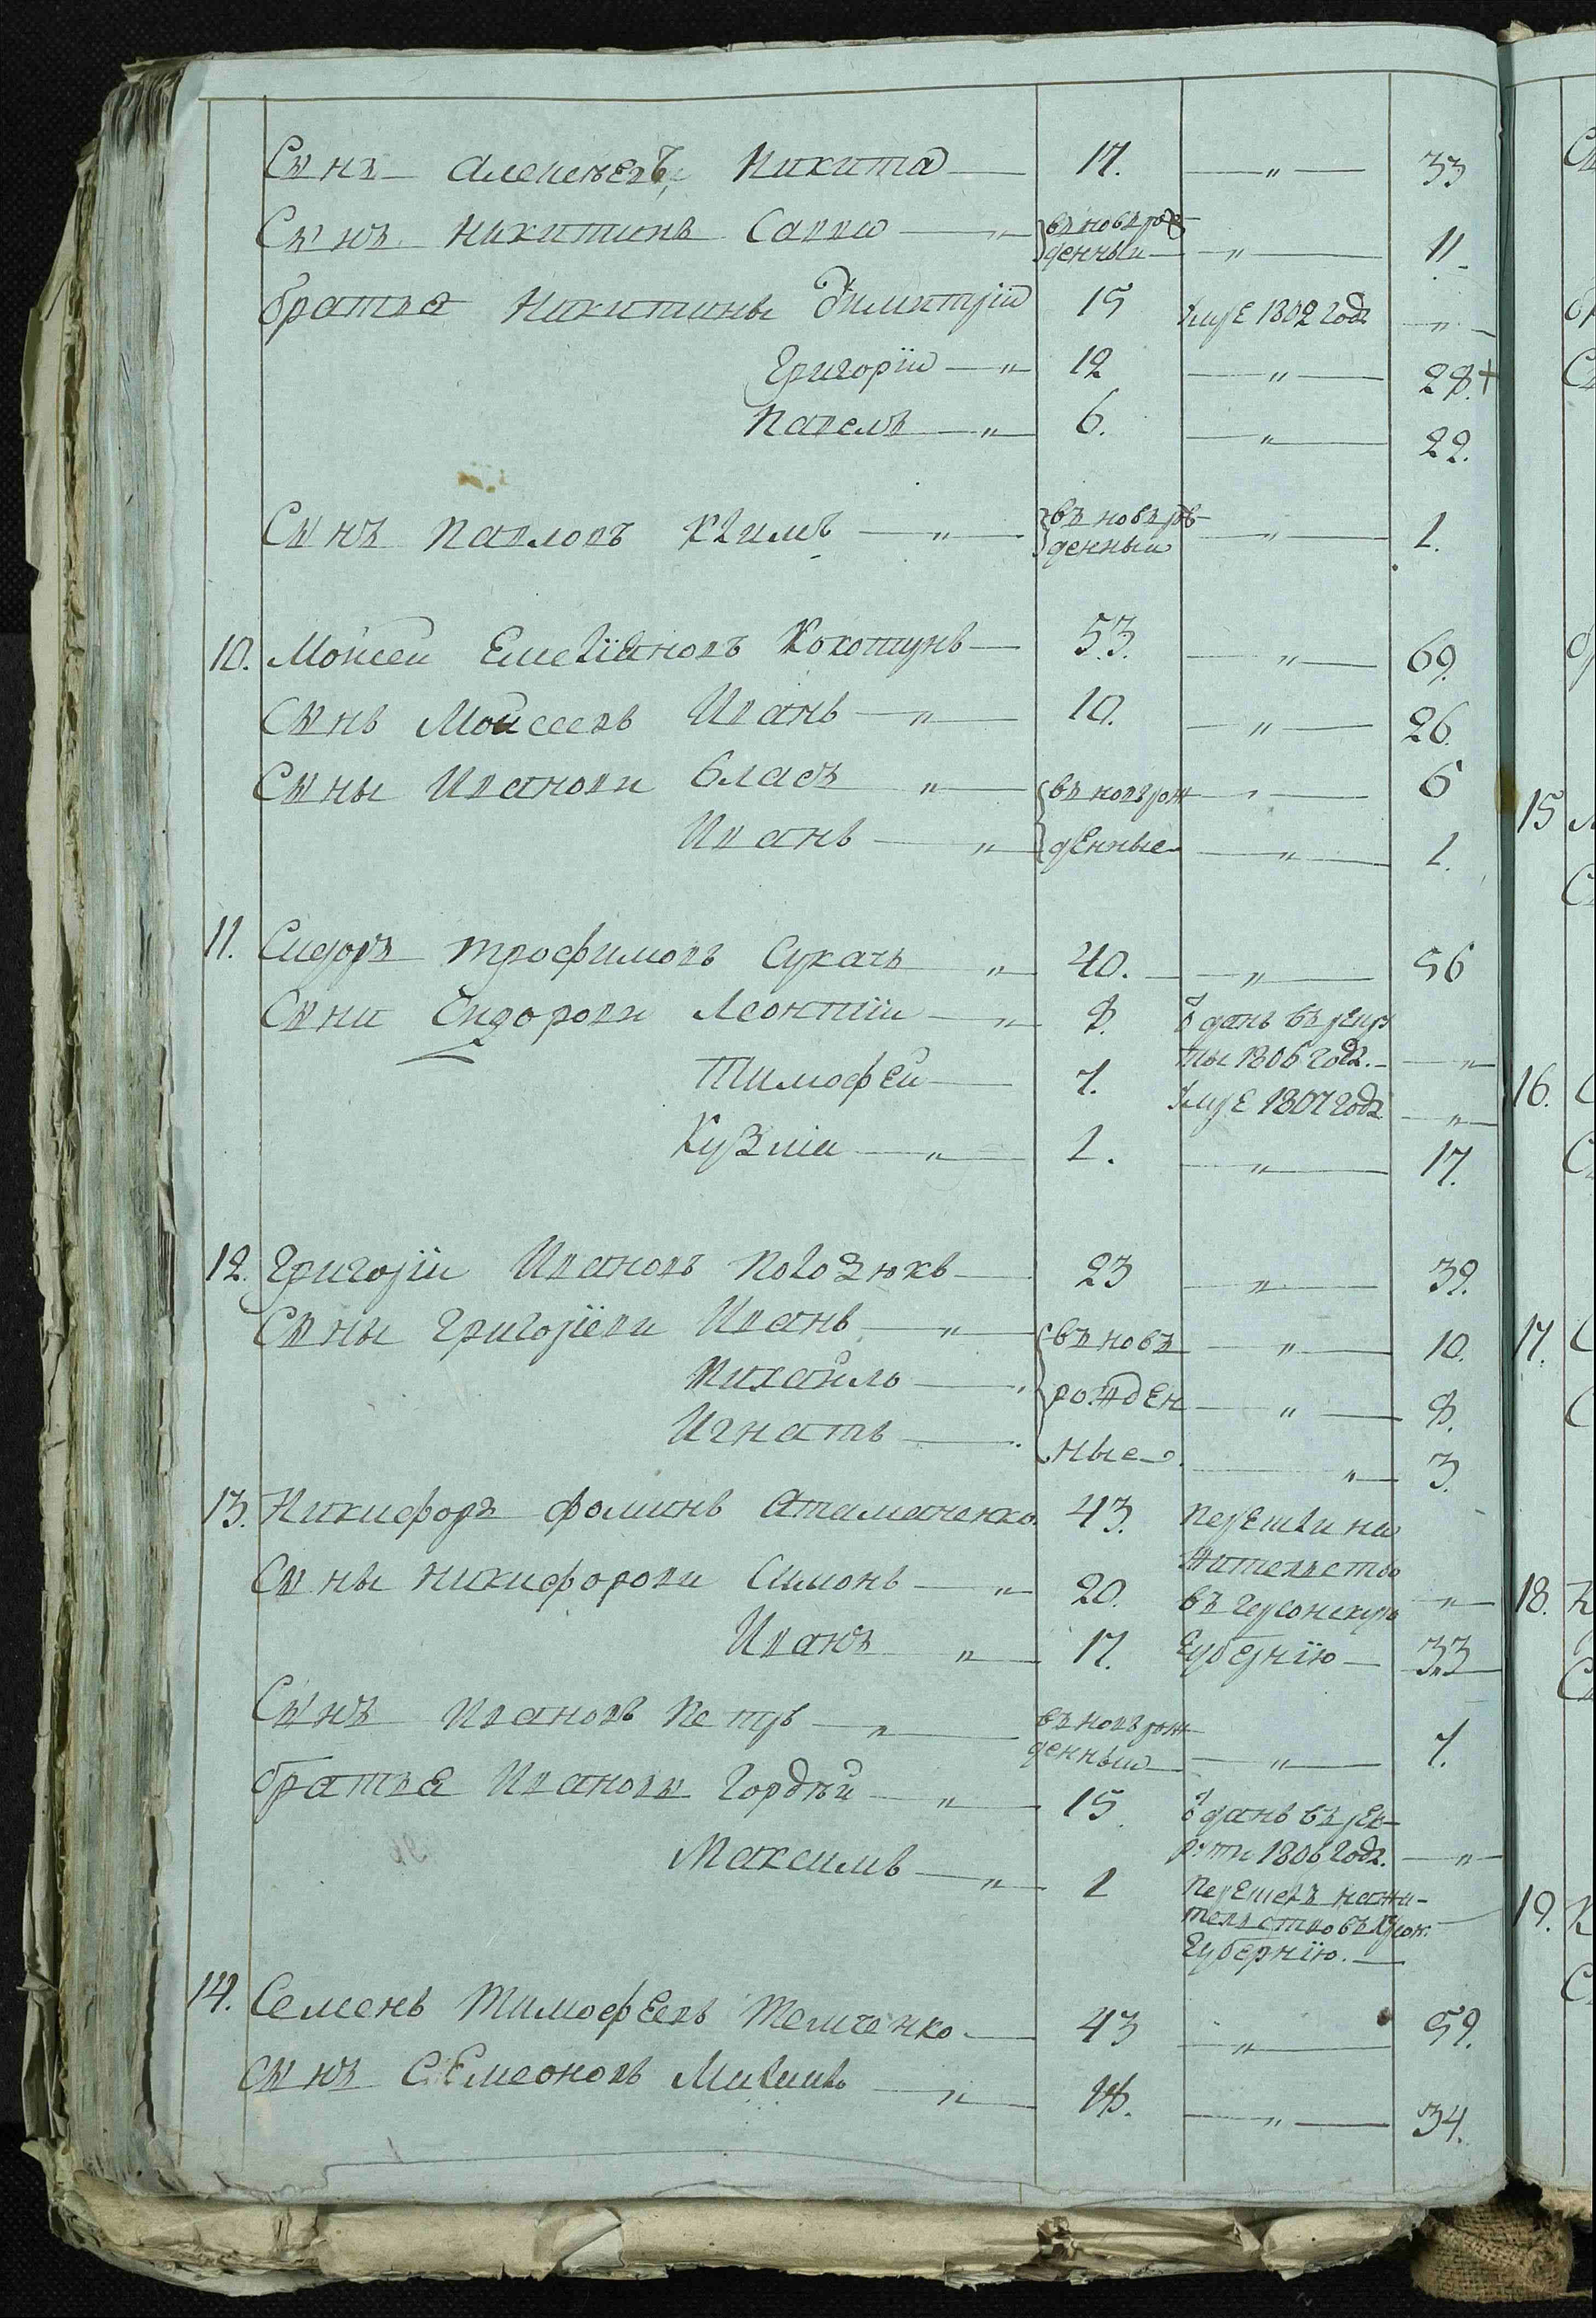 Сынъ Алексеевъ Никита — 17. — " — 33
Сынъ Никитинъ Савва — " — въновърож- — " — 11
денный
братья Никитины Димитрій 15 Умре 1802 года — " —
Григорій — " — 12 — " — 28.+
Павелъ — " — 6. — " — 22.
Сынъ Павловъ Климъ — " — въ новърож- — " — 1.
денный
10. Мойсей Емеліяновъ Кокотунъ — 53. — " — 69.
Сынъ Мойсеевъ Иванъ — " — 10. — " — 26.
Сыны Иванови Власъ " — въ новърож — " — 6
Иванъ — " — денные — " — 1.
11. Сидоръ Трофимовъ Сукачъ " — 40. — " — 56
Сыни Сидорови Леонтій — " — 8. Ѿданъ въ рекру
ты 1806 года. — " —
Тимофей — 7. Умре 1807 года — " —
Кузміи — " — 1. — " — 17.
12. Григорій Ивановъ Лолозюкъ — 23 — " — 39.
Сыны Григоріеви Иванъ — " — въ новъ — " — 10.
Михаилъ — рожден — " — 8.
Игнатъ — ные — " — 3.
13. Никифоръ Фоминъ Атаманченко. 43. перешли на
жителство
Сыны Никифорови Симонъ — " — 20. въ херсонскую — " —
Иванъ " — 17. Губернію — 33
Сынъ Ивановъ Петръ — " — въ новърож
денный — " — 7.
братья Ивановы Гордѣй — " — 15 Ѿданъ въ рек-
руты 1806 года. — " —
Максимъ — " — 1 перешелъ на жи-
телство въ Херсон.
Губернію. —
14. Семенъ Тимофеевъ Темченко — 43 — " — 59.
Сынъ Семеоновъ — " — 18. — " — 34.
15
16.
17.
18.
19.